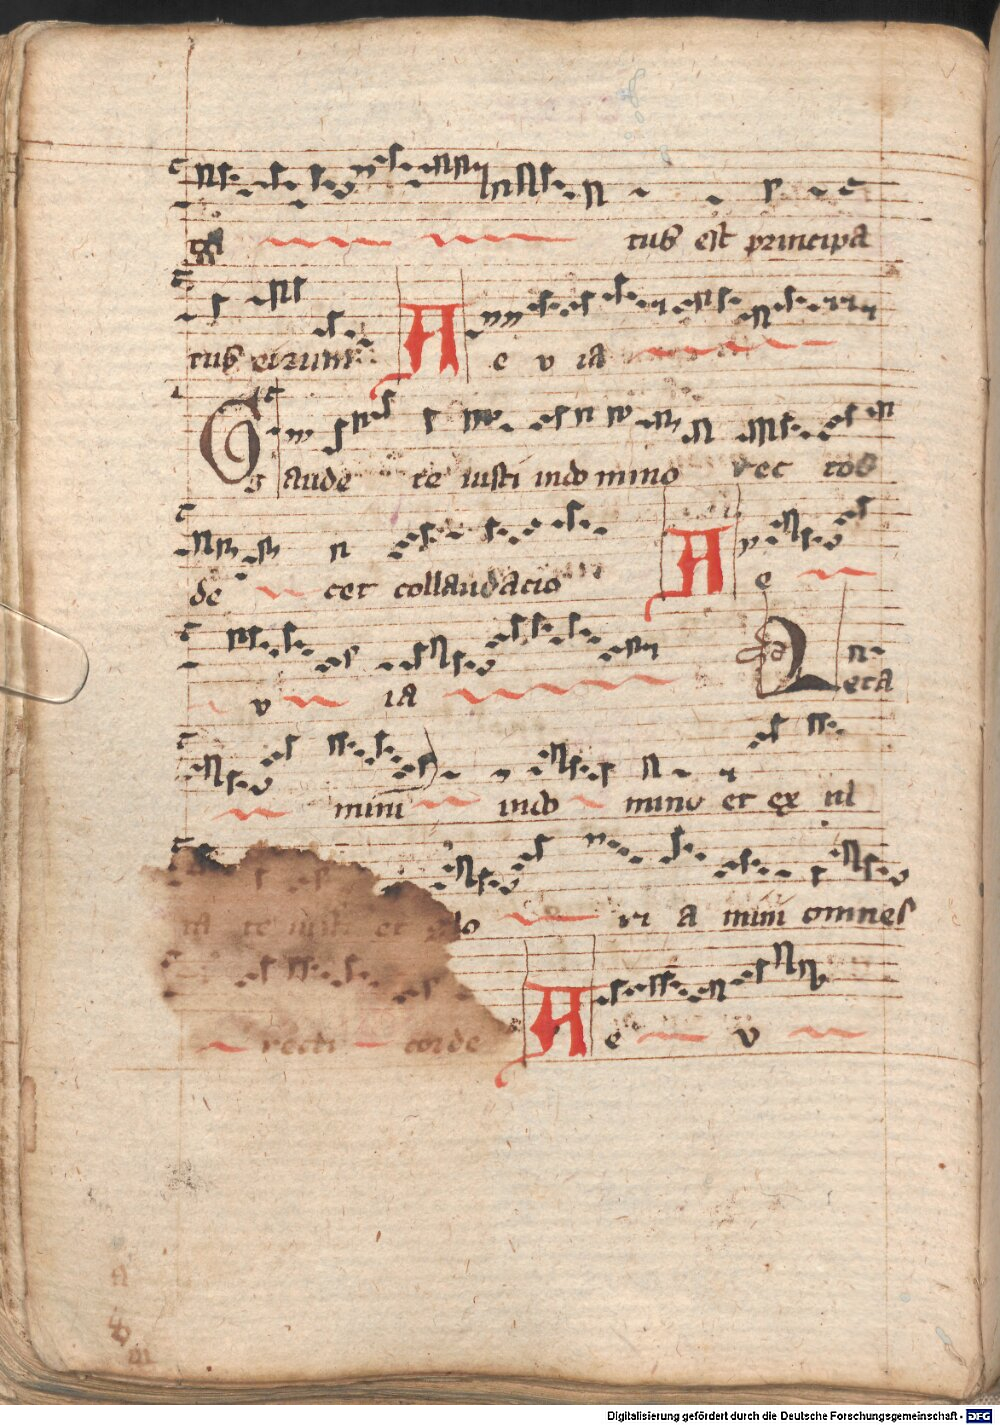 ta tus est principa
tus eorum A e v ia
Gaude te iusti in domino rec tos
de cet collaudacio A e
v ia Leta
mini in do mino et ex ul
ta te iusti et glo ri a mini omnes
recti corde A e v
Digitalisierung gefördert durch die Deutsche Forschungsgemeinschaft - DFG